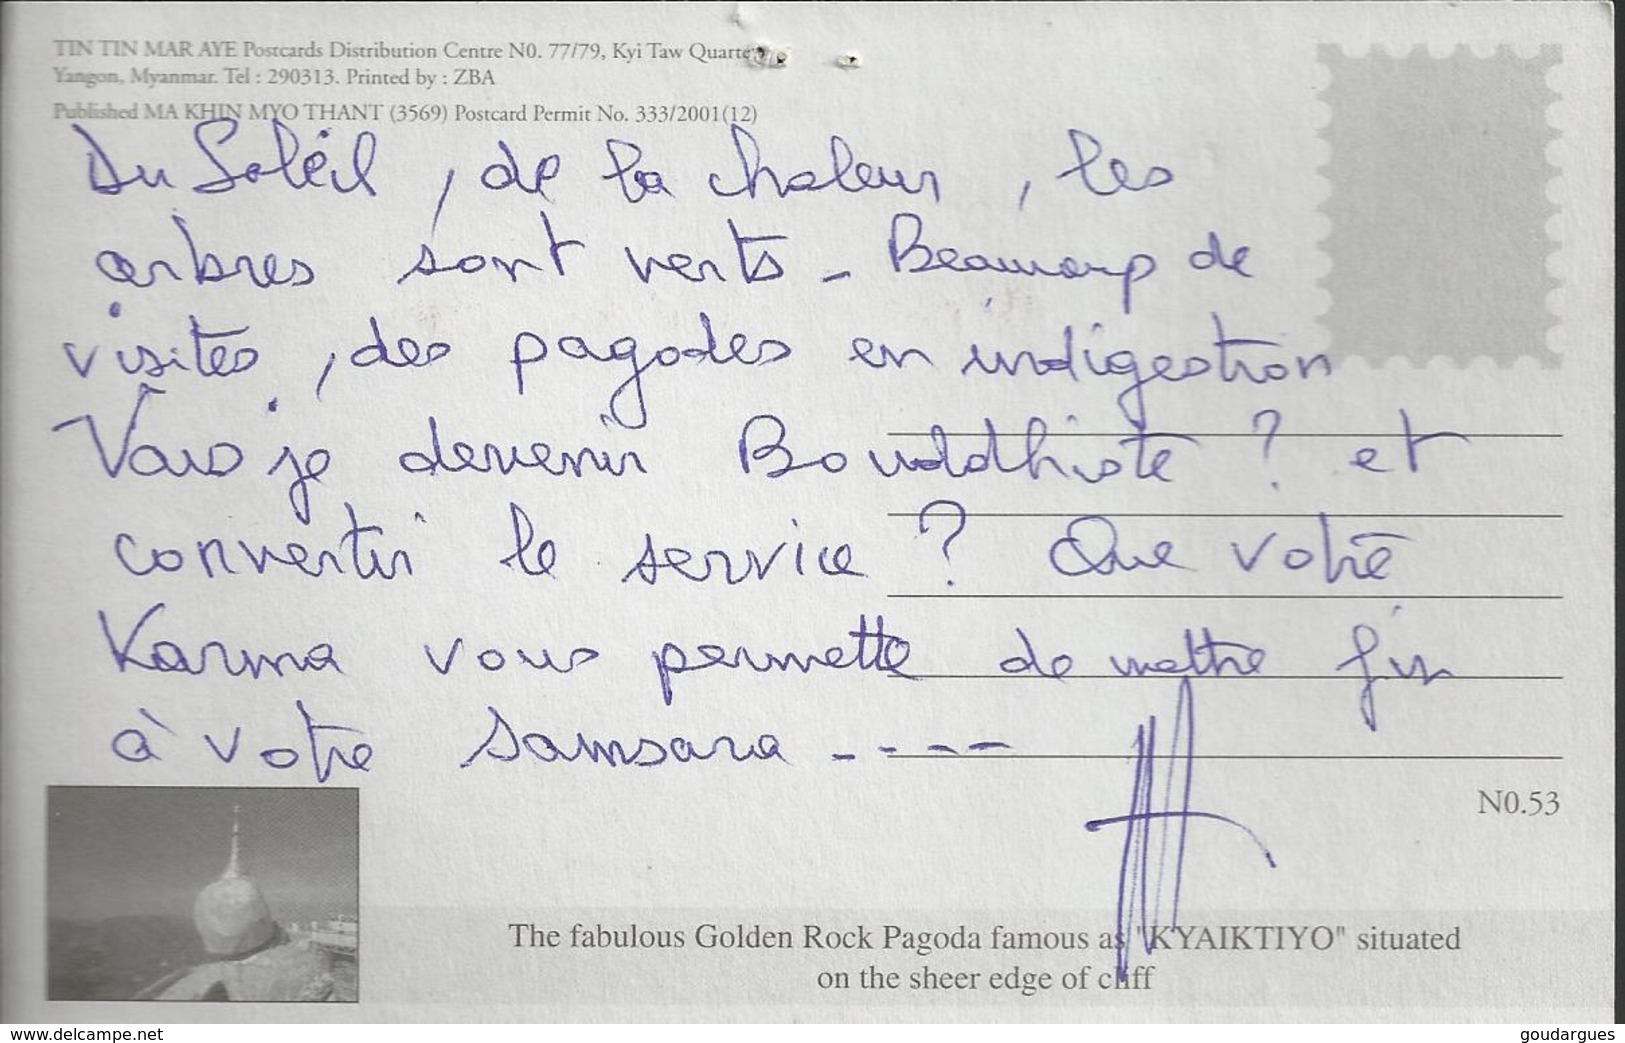 TIN TIN MAR AYE Postcards Distribution Centre N0. 77/79, Kyi Taw Quarter,
Yangon, Myanmar. Tel : 290313. Printed by : ZBA
Published MA KHIN MYO THANT (3569) Postcard Permit No. 333/2001(12)
Du Soleil, de la chaleur, les
arbres sont verts - Beaucoup de
visites, des pagodes en indigestion
Vais je devenir Bouddhiste ? et
convertir le service ? Que votre
Karma vous permette de mettre fin
à votre Samsara ----
N0.53
The fabulous Golden Rock Pagoda famous as "KYAIKTIYO" situated
on the sheer edge of cliff
www.delcampe.net
goudargues